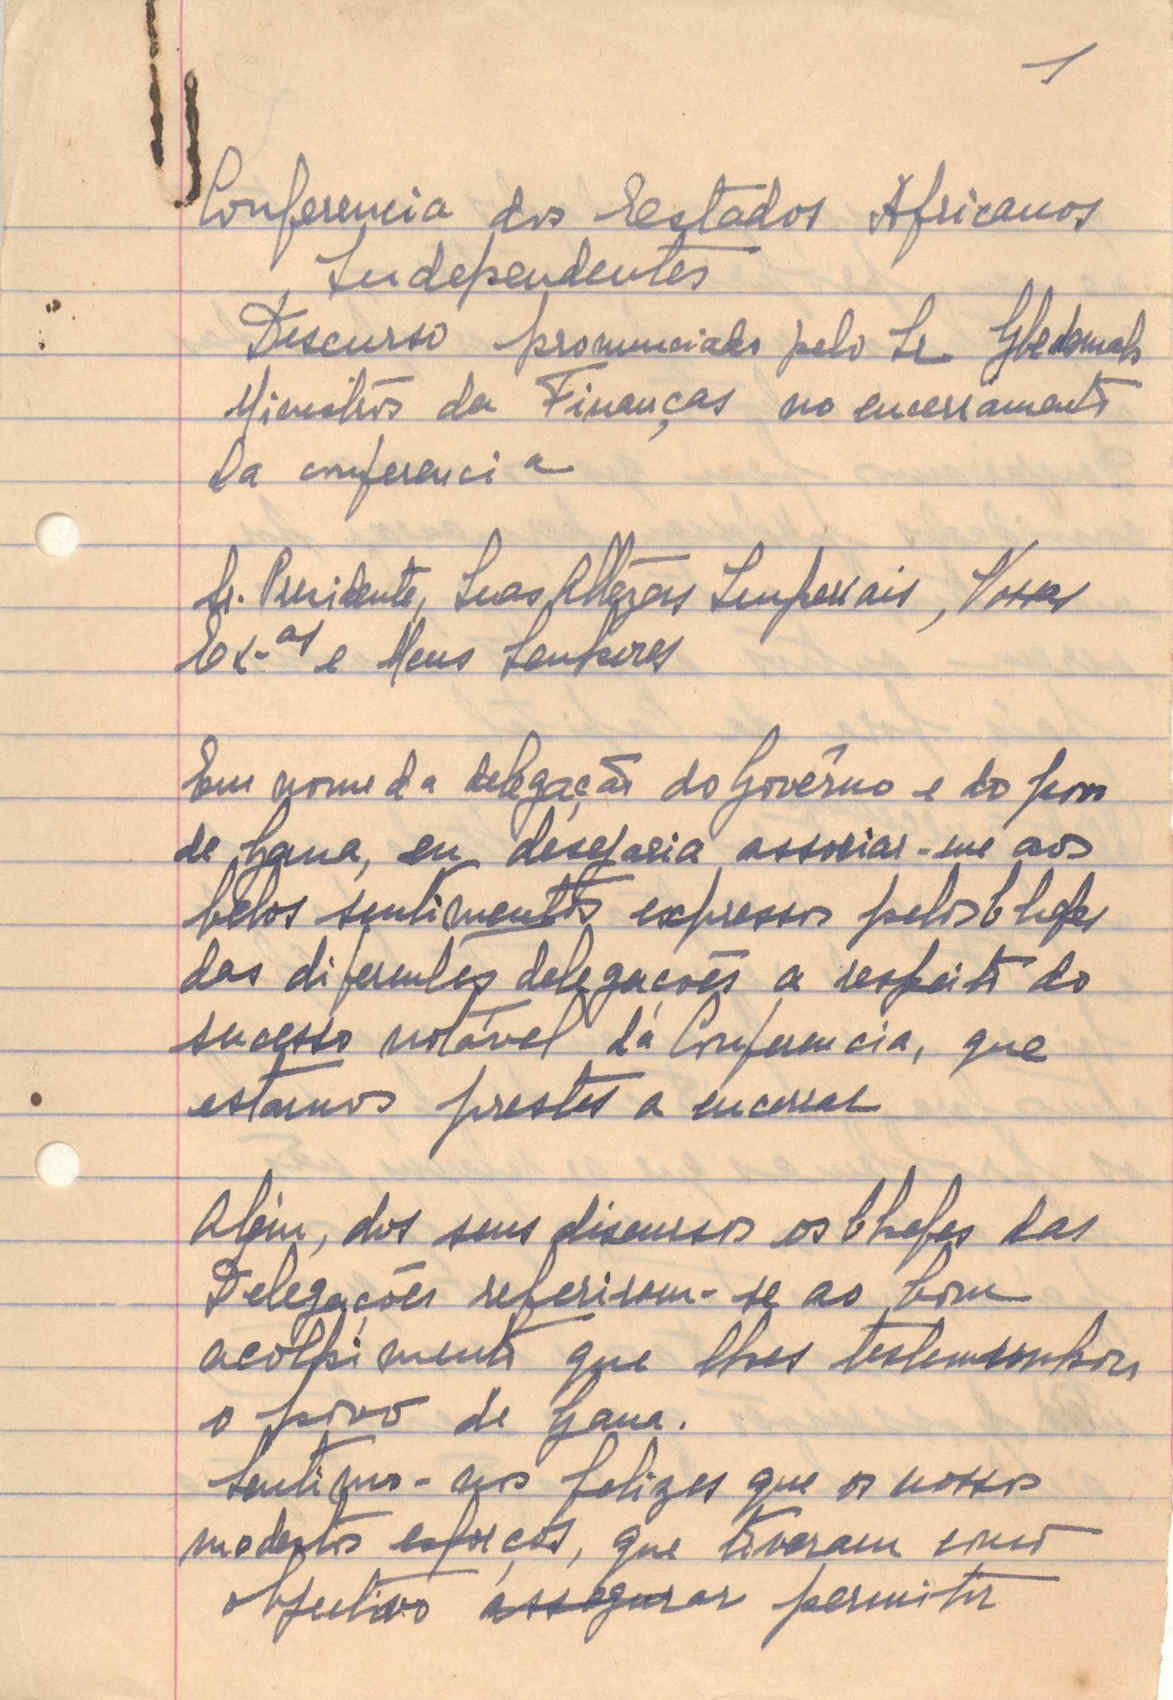 1
Conferencia dos Estados Africanos
Independentes
Discurso pronunciado pelo Sr. Gbedemah
Ministro das Finanças no encerramento
da conferencia
Sr. Presidente, Suas Altezas Imperiais, Vossas
Ex.as e Meus Senhores
Em nome da delegação do Govêrno e do povo
de Gana, eu desejaria associar-me aos
belos sentimentos expressos pelos Chefes
das diferentes delegações a respeito do
sucesso notável da Conferencia, que
estamos prestes a encerrar
Além, dos seus discursos os Chefes das
Delegações referiram-se ao bom
acolhimento que lhes testemunhou
o povo de Gana.
Sentimo-nos felizes que os nossos
modestos esforços, que tiveram como
objectivo assegurar permitir